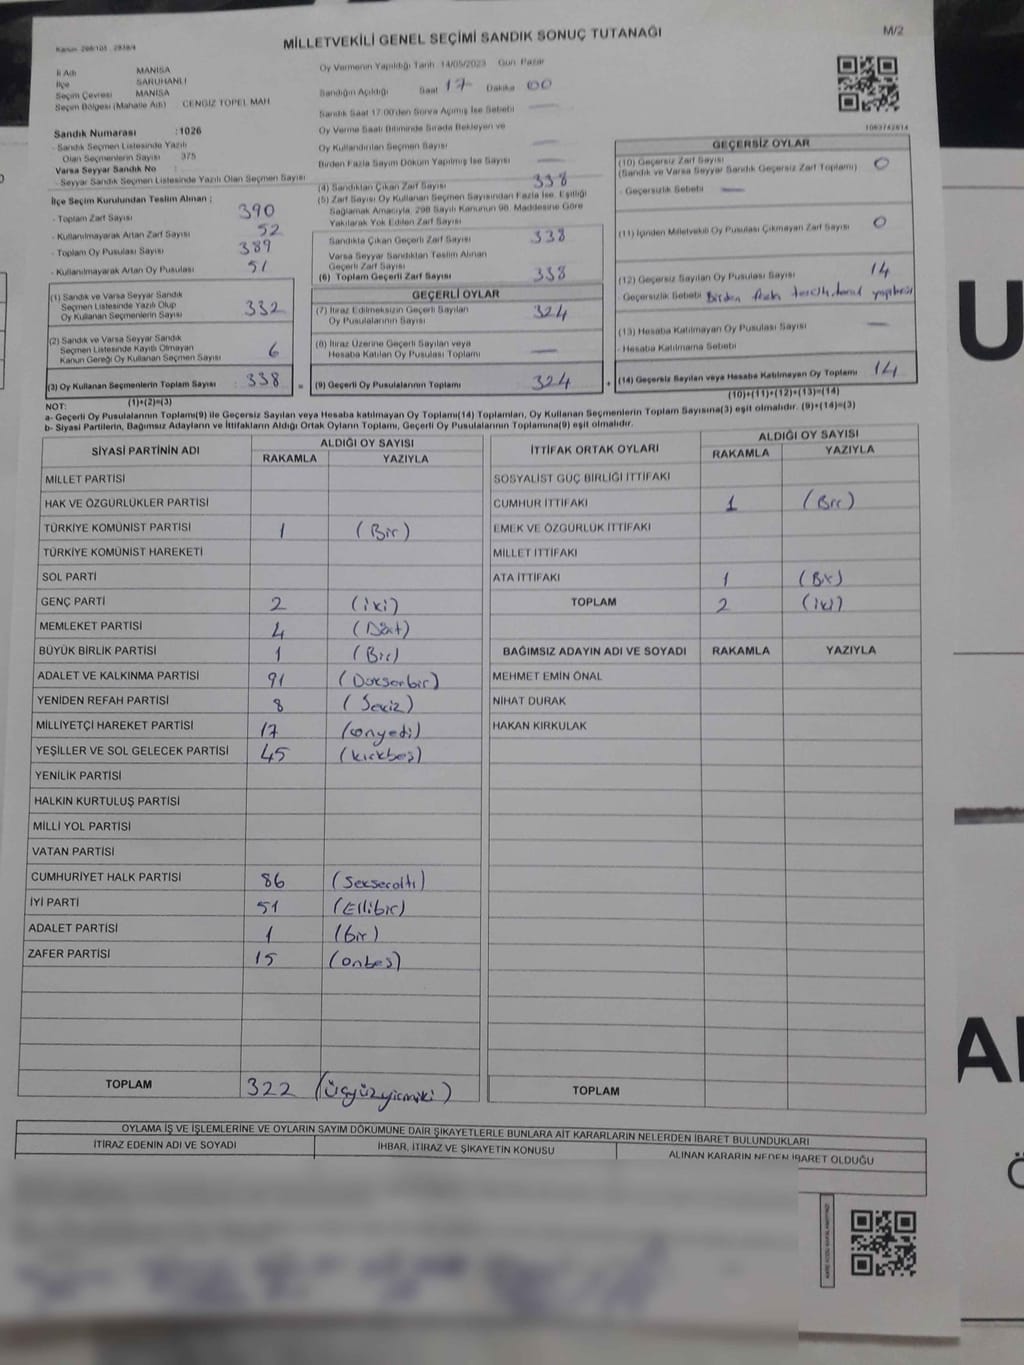 Kanun 298/103 - 2839/4
MİLLETVEKİLİ GENEL SEÇİMİ SANDIK SONUÇ TUTANAĞI
M/2
İl Adı MANİSA
İlçe SARUHANLI
Seçim Çevresi MANİSA
Seçim Bölgesi (Mahalle Adı) CENGİZ TOPEL MAH
Oy Vermenin Yapıldığı Tarih 14/05/2023 Gün Pazar
Sandığın Açıldığı Saat 17 Dakika 00
Sandık Saat 17:00'den Sonra Açılmış İse Sebebi —
Oy Verme Saati Bitiminde Sırada Bekleyen ve
Oy Kullandırılan Seçmen Sayısı —
Birden Fazla Sayım Döküm Yapılmış İse Sayısı —
Sandık Numarası :1026
- Sandık Seçmen Listesinde Yazılı
Olan Seçmenlerin Sayısı 375
Varsa Seyyar Sandık No :
- Seyyar Sandık Seçmen Listesinde Yazılı Olan Seçmen Sayısı
İlçe Seçim Kurulundan Teslim Alınan ;
- Toplam Zarf Sayısı 390
- Kullanılmayarak Artan Zarf Sayısı 52
- Toplam Oy Pusulası Sayısı 389
- Kullanılmayarak Artan Oy Pusulası 51
(1) Sandık ve Varsa Seyyar Sandık
Seçmen Listesinde Yazılı Olup
Oy Kullanan Seçmenlerin Sayısı 332
(2) Sandık ve Varsa Seyyar Sandık
Seçmen Listesinde Kayıtlı Olmayan
Kanun Gereği Oy Kullanan Seçmen Sayısı 6
(3) Oy Kullanan Seçmenlerin Toplam Sayısı : 338
(1)+(2)=(3)
(4) Sandıktan Çıkan Zarf Sayısı 338
(5) Zarf Sayısı Oy Kullanan Seçmen Sayısından Fazla İse, Eşitliği
Sağlamak Amacıyla, 298 Sayılı Kanunun 98. Maddesine Göre
Yakılarak Yok Edilen Zarf Sayısı
Sandıkta Çıkan Geçerli Zarf Sayısı 338
Varsa Seyyar Sandıktan Teslim Alınan
Geçerli Zarf Sayısı
(6) Toplam Geçerli Zarf Sayısı 338
GEÇERLİ OYLAR
(7) İtiraz Edilmeksizin Geçerli Sayılan
Oy Pusulalarının Sayısı 324
(8) İtiraz Üzerine Geçerli Sayılan veya
Hesaba Katılan Oy Pusulası Toplamı —
= (9) Geçerli Oy Pusulalarının Toplamı 324
1093742814
GEÇERSİZ OYLAR
(10) Geçersiz Zarf Sayısı
(Sandık ve Varsa Seyyar Sandık Geçersiz Zarf Toplamı) 0
- Geçersizlik Sebebi —
(11) İçinden Milletvekili Oy Pusulası Çıkmayan Zarf Sayısı 0
(12) Geçersiz Sayılan Oy Pusulası Sayısı 14
Geçersizlik Sebebi Birden fazla
(13) Hesaba Katılmayan Oy Pusulası Sayısı —
- Hesaba Katılmama Sebebi
+ (14) Geçersiz Sayılan veya Hesaba Katılmayan Oy Toplamı 14
(10)+(11)+(12)+(13)=(14)
NOT:
a- Geçerli Oy Pusulasının Toplamı(9) ile Geçersiz Sayılan veya Hesaba katılmayan Oy Toplamı(14) Toplamları, Oy Kullanan Seçmenlerin Toplam Sayısına(3) eşit olmalıdır. (9)+(14)=(3)
b- Siyasi Partilerin, Bağımsız Adayların ve İttifakların Aldığı Ortak Oyların Toplamı, Geçerli Oy Pusulalarının Toplamına(9) eşit olmalıdır.
SİYASİ PARTİNİN ADI ALDIĞI OY SAYISI
RAKAMLA YAZIYLA
MİLLET PARTİSİ
HAK VE ÖZGÜRLÜKLER PARTİSİ
TÜRKİYE KOMÜNİST PARTİSİ 1 (Bir)
TÜRKİYE KOMÜNİST HAREKETİ
SOL PARTİ
GENÇ PARTİ 2 (iki)
MEMLEKET PARTİSİ 4 (Dört)
BÜYÜK BİRLİK PARTİSİ 1 (Bir)
ADALET VE KALKINMA PARTİSİ 91 (Doksanbir)
YENİDEN REFAH PARTİSİ 8 (Sekiz)
MİLLİYETÇİ HAREKET PARTİSİ 17 (onyedi)
YEŞİLLER VE SOL GELECEK PARTİSİ 45 (kırkbeş)
YENİLİK PARTİSİ
HALKIN KURTULUŞ PARTİSİ
MİLLİ YOL PARTİSİ
VATAN PARTİSİ
CUMHURİYET HALK PARTİSİ 86 (Seksenaltı)
İYİ PARTİ 51 (Ellibir)
ADALET PARTİSİ 1 (bir)
ZAFER PARTİSİ 15 (onbeş)
TOPLAM 322 (üçyüzyirmiiki)
İTTİFAK ORTAK OYLARI ALDIĞI OY SAYISI
RAKAMLA YAZIYLA
SOSYALİST GÜÇ BİRLİĞİ İTTİFAKI
CUMHUR İTTİFAKI 1 (Bir)
EMEK VE ÖZGÜRLÜK İTTİFAKI
MİLLET İTTİFAKI
ATA İTTİFAKI 1 (Bir)
TOPLAM 2 (iki)
BAĞIMSIZ ADAYIN ADI VE SOYADI RAKAMLA YAZIYLA
MEHMET EMİN ÖNAL
NİHAT DURAK
HAKAN KIRKULAK
TOPLAM
OYLAMA İŞ VE İŞLEMLERİNE VE OYLARIN SAYIM DÖKÜMÜNE DAİR ŞİKAYETLERLE BUNLARA AİT KARARLARIN NELERDEN İBARET BULUNDUKLARI
İTİRAZ EDENİN ADI VE SOYADI İHBAR, İTİRAZ VE ŞİKAYETİN KONUSU ALINAN KARARIN NEDEN İBARET OLDUĞU
U
Al
Ö